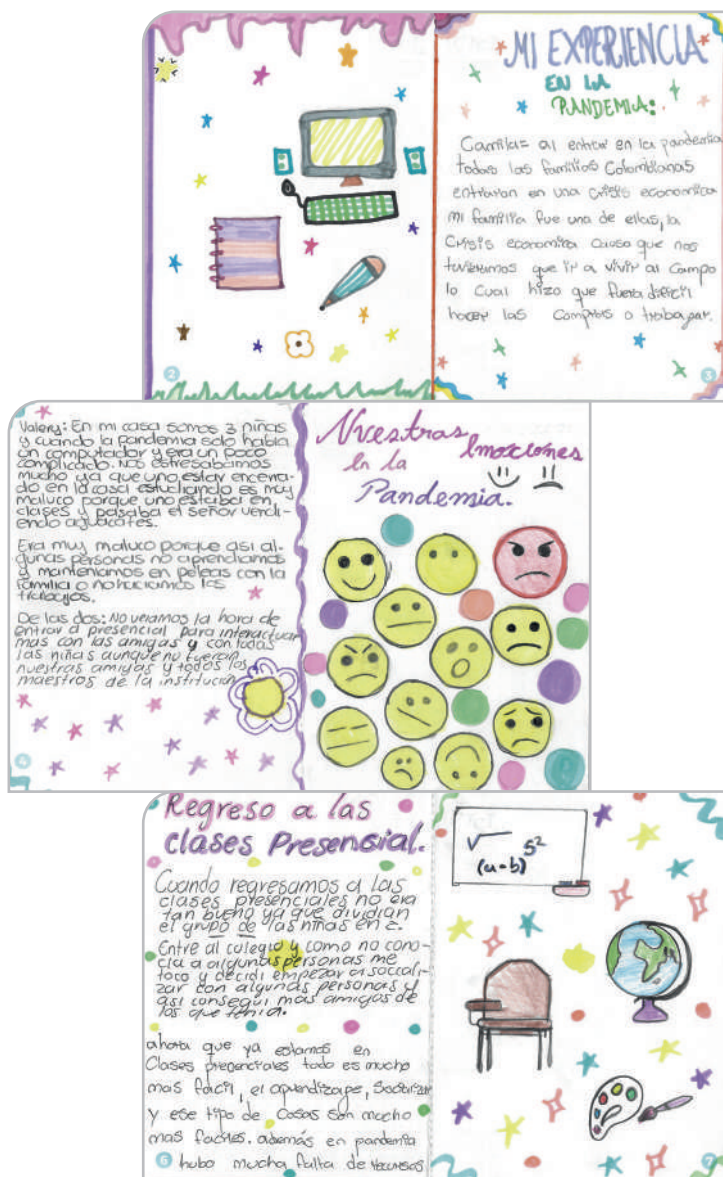 MI EXPERIENCIA
EN LA
PANDEMIA:
Camila= al entrar en la pandemia
todas las familias Colombianas
entraron en una crisis economica
mi familia fue una de ellas, la
Crisis economica causo que nos
tuvieramos que ir a vivir al campo
lo cual hizo que fuera dificil
hacer las compras o trabajar.
2
3
Valery: En mi casa somos 3 niñas
y cuando la pandemia solo habia
un computador y era un poco
complicado. Nos estresabamos
mucho ya que uno estar encerra-
do en la casa estudiando es muy
maluco porque uno estaba en
clases y pasaba el señor vendi-
endo aguacates.
Era muy maluco porque asi al-
gunas personas no aprendiamos
y manteniamos en peleas con la
familia o no haciamos los
trabajos.
De las dos: No veiamos la hora de
entrar a presencial para interactuar
mas con las amigas y con todas
las niñas aunque no fueran
nuestras amigas y todos los
maestros de la institución
4
Nuestras
Emociones
en la
Pandemia.
Regreso a las
clases Presensial.
Cuando regresamos a las
clases presenciales no era
tan bueno ya que dividian
el grupo de las niñas en 2.
Entre al colegio y como no cono-
cia a algunas personas me
toco y decidi empezar a sociali-
zar con algunas personas y
asi consegui mas amigos de
los que tenia.
ahora que ya estamos en
Clases presenciales todo es mucho
mas facil, el aprendizaje, Socializar
y ese tipo de cosas son mucho
mas faciles. además en pandemia
hubo mucha falta de recursos
6
√ 5²
(a-b)
7